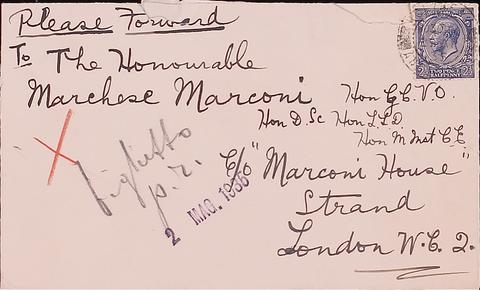 Please Forward
To The Honourable
Marchese Marconi Hon G.C.V.O.
Hon D.Sc Hon L.L.D
Hon M Inst C.E
biglietto
p.r.
C/o "Marconi House"
2 MAG. 1935
Strand
London W.C. 2.